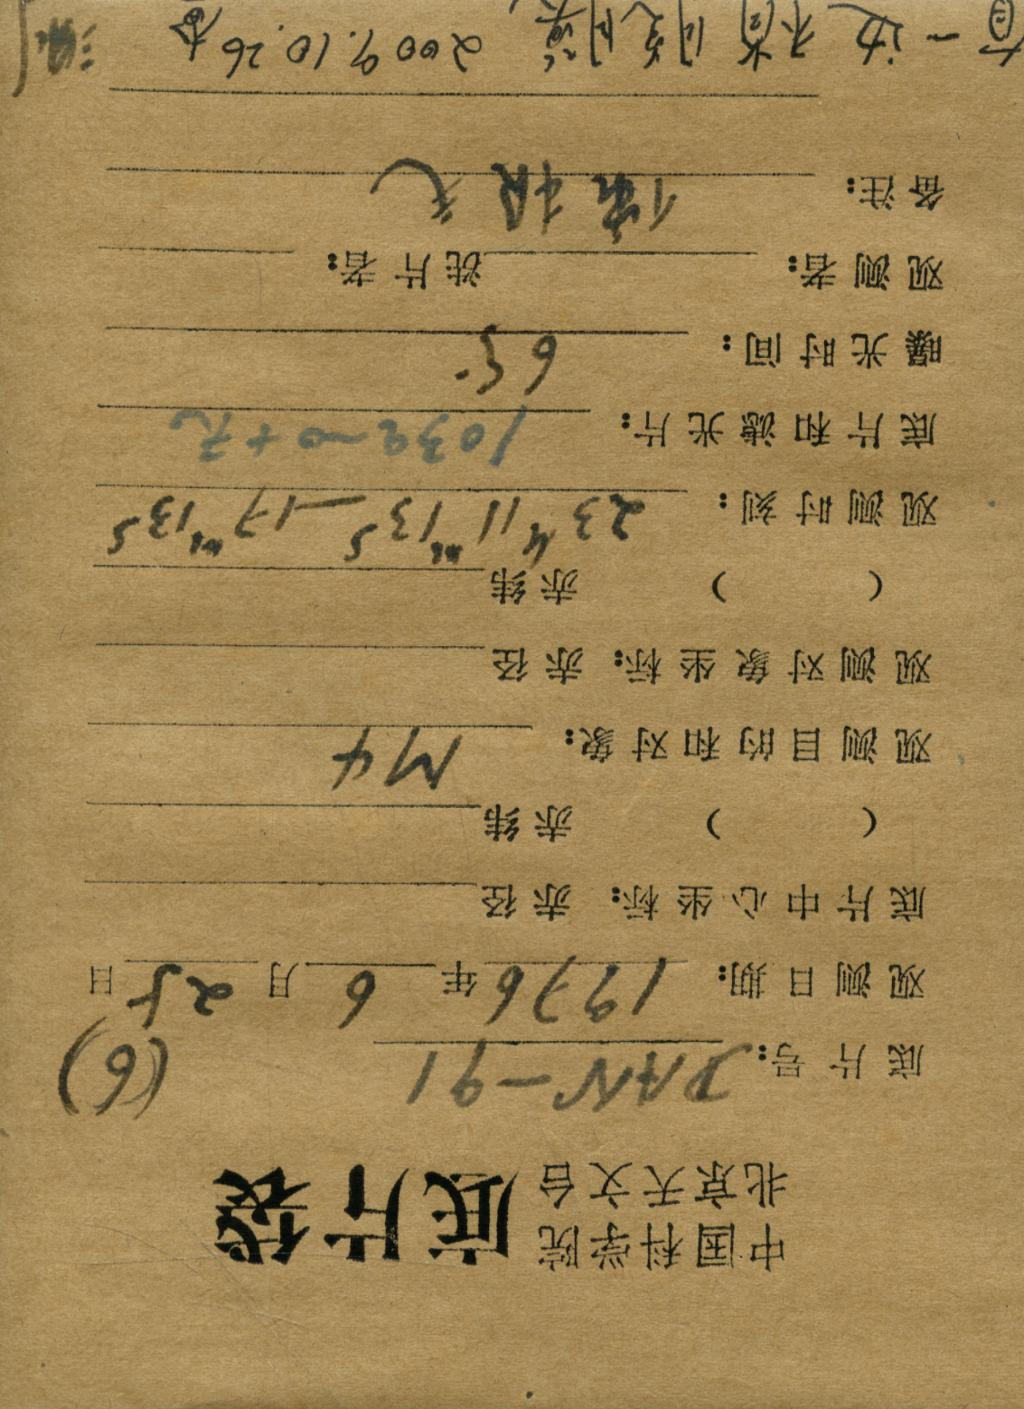 中国科学院
北京天文台 底片袋
底片号: PAN-91 (6)
观测日期: 1976年6月25日
底片中心坐标: 赤径
( ) 赤纬
观测目的和对象: M4
观测对象坐标: 赤径
( ) 赤纬
观测时刻: 23ʰ11ᵐ13ˢ—17ᵐ13ˢ
底片和滤光片: 103a-O+无
曝光时间: 6
观测者: 洗片者:
备注: 极
有一边不有 2009.10.26